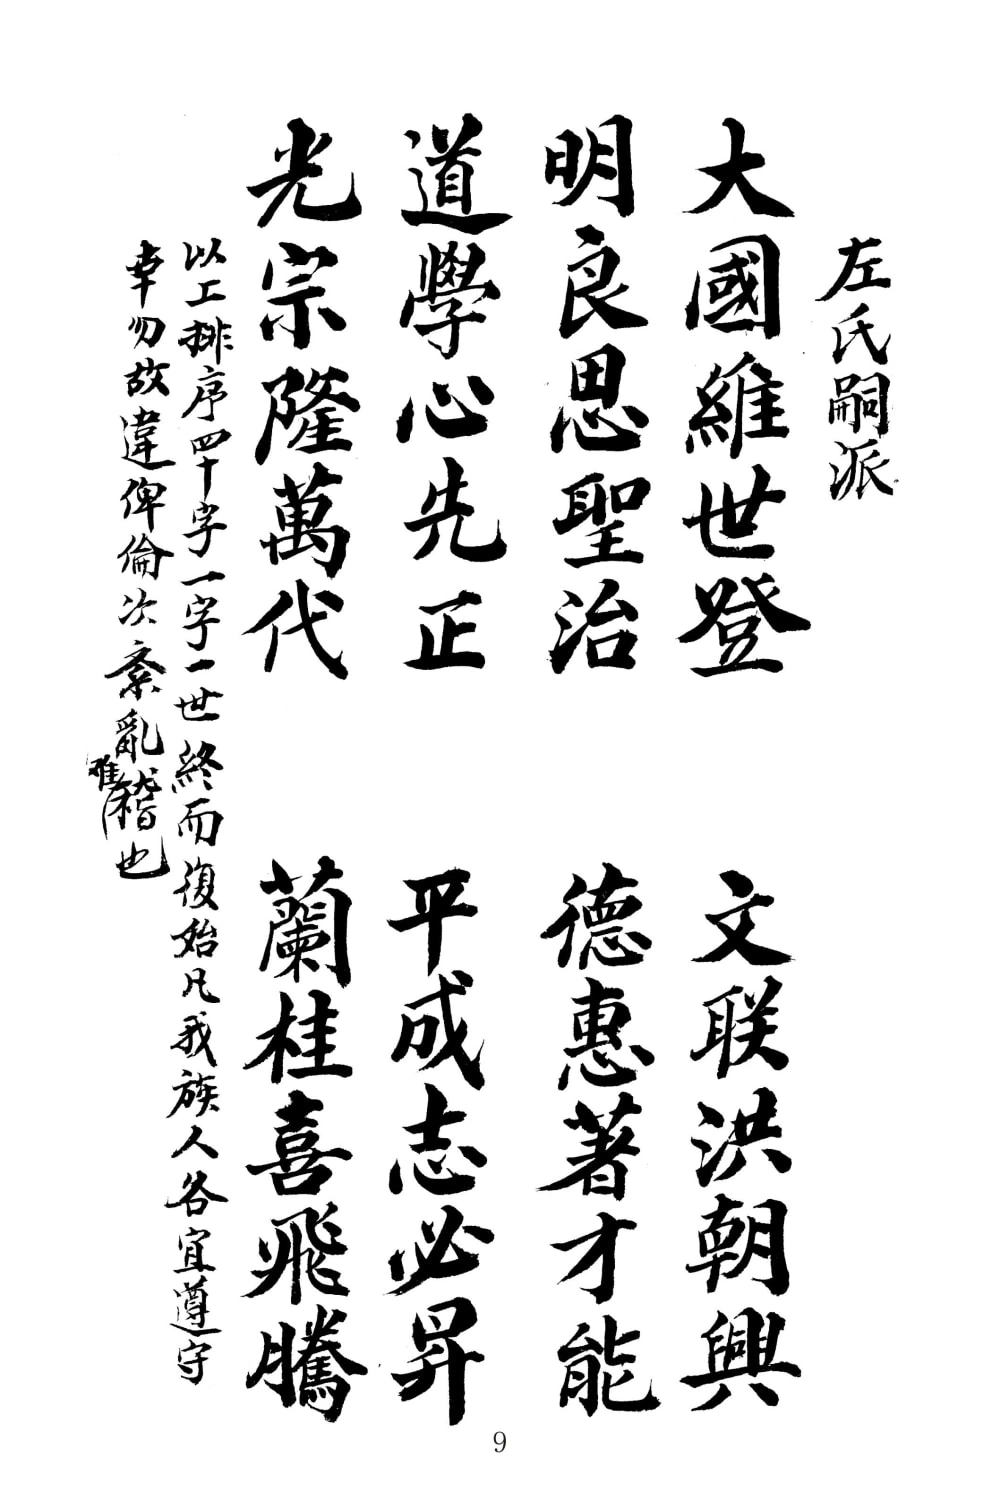 左氏嗣派
大國維世登 文联洪朝興
明良思聖治 德惠著才能
道學心先正 平成志必昇
光宗隆萬代 蘭桂喜飛騰
以上排序四十字一字一世終而復始凡我族人各宜遵守
幸勿故違俾倫次紊亂難稽也
9